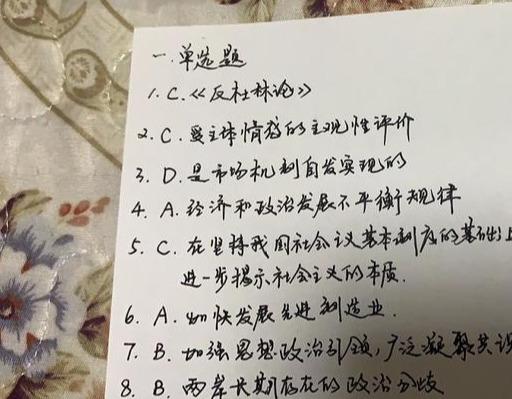 一.单选题
1. C.《反杜林论》
2. C. 受主体情格的主观性评价
3. D. 是市场机制自发实现的
4. A. 经济和政治发展不平衡规律
5. C. 在坚持我国社会主义基本制度的基础上
进一步揭示社会主义的本质.
6. A. 加快发展先进制造业.
7. B. 加强思想政治引领,广泛凝聚共识
8. B. 两岸长期存在的政治分歧